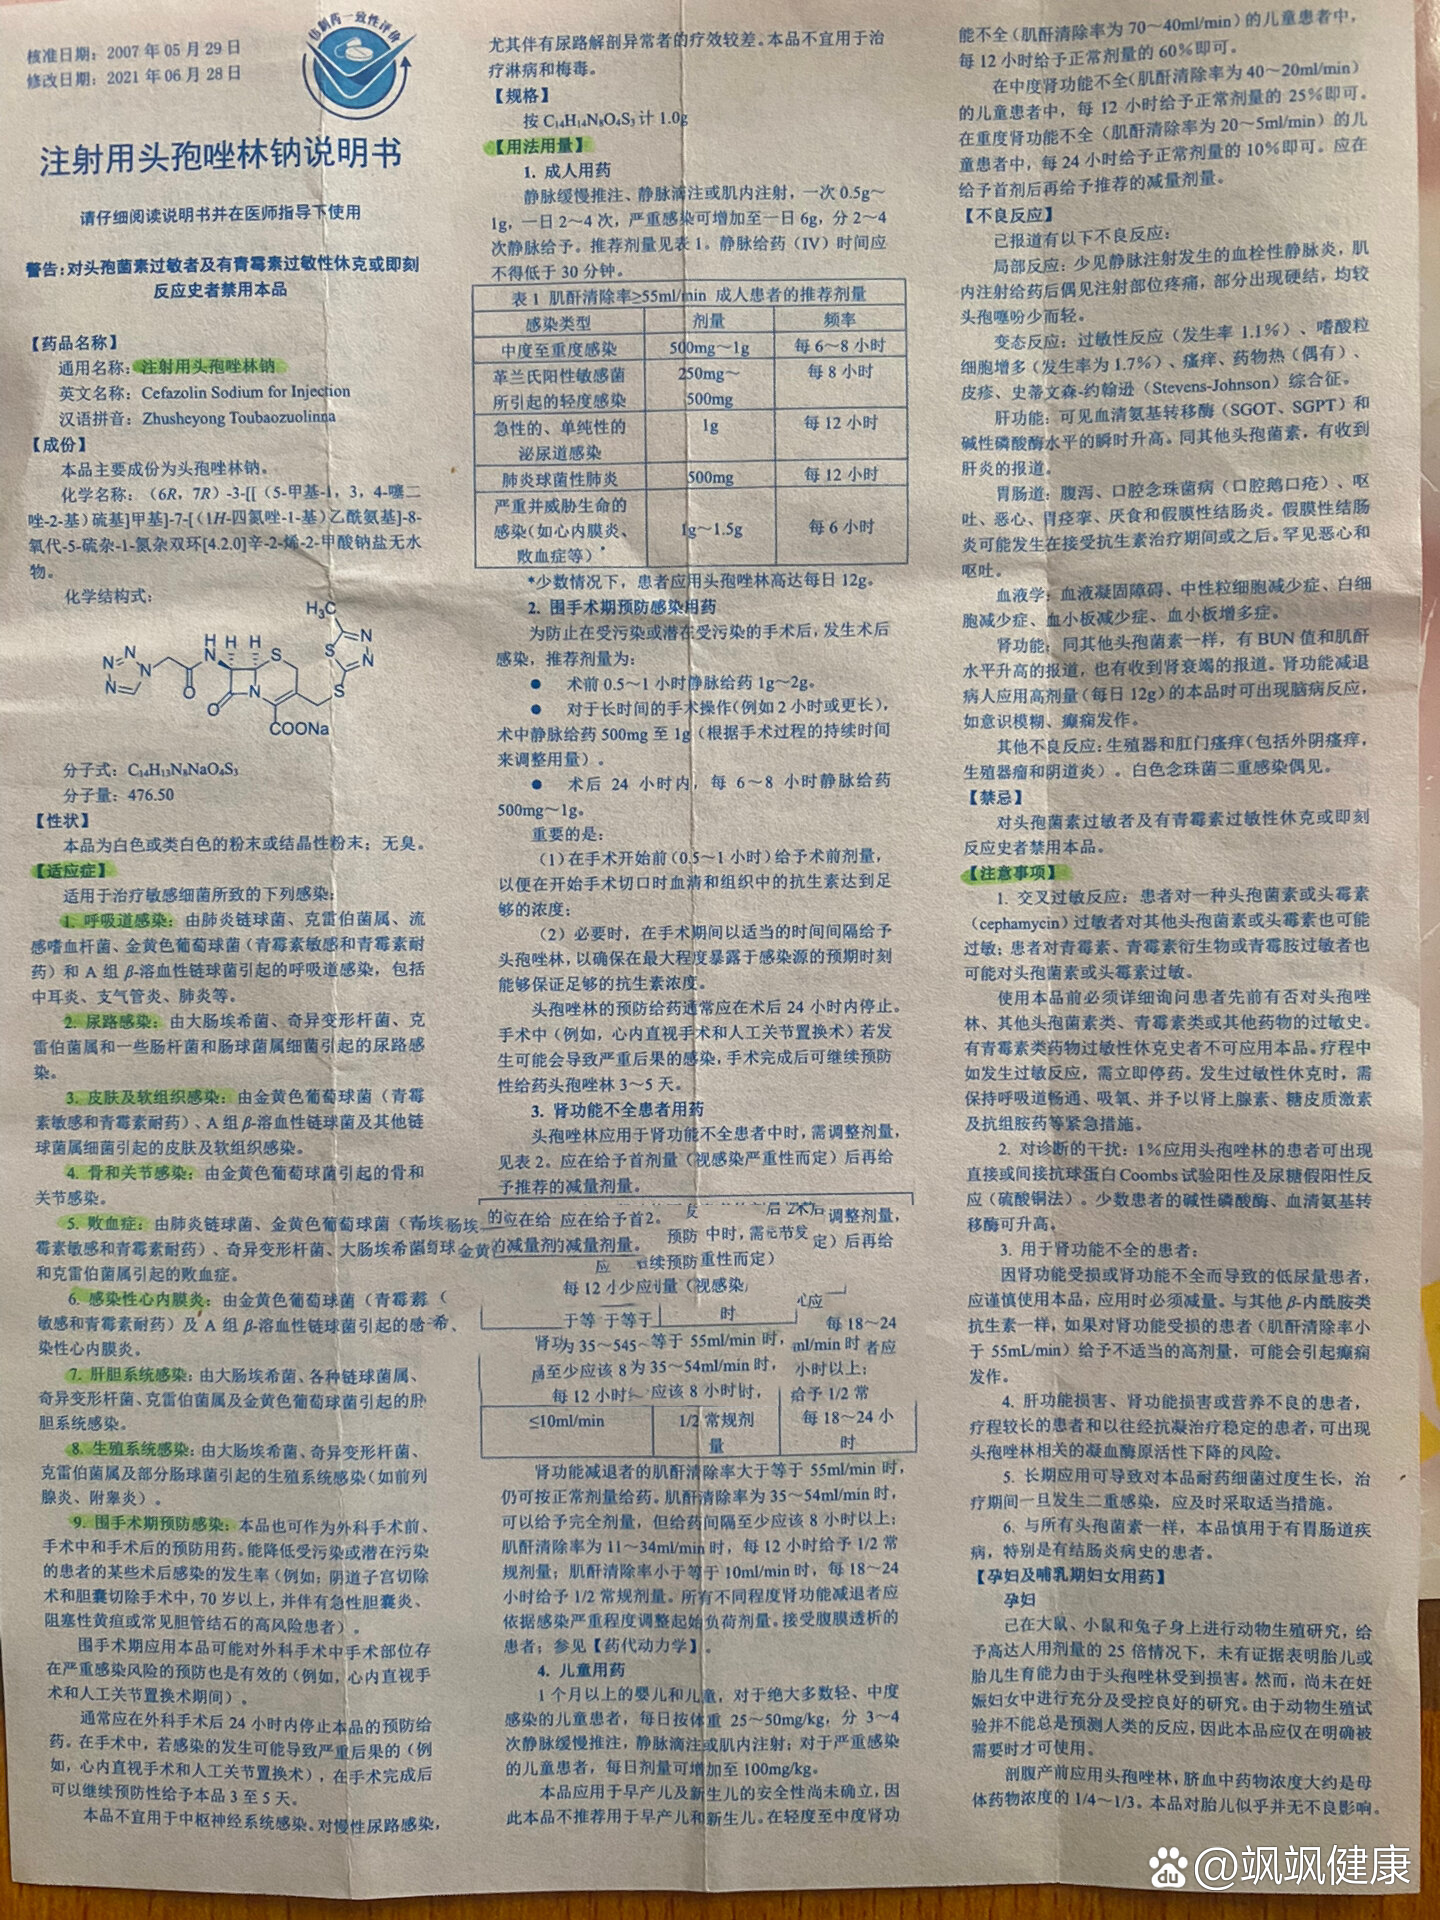 核准日期：2007 年 05 月 29 日
修改日期：2021 年 06 月 28 日
仿制药一致性评价
注射用头孢唑林钠说明书
请仔细阅读说明书并在医师指导下使用
警告：对头孢菌素过敏者及有青霉素过敏性休克或即刻
反应史者禁用本品
【药品名称】
通用名称：注射用头孢唑林钠
英文名称：Cefazolin Sodium for Injection
汉语拼音：Zhusheyong Toubaozuolinna
【成份】
本品主要成份为头孢唑林钠。
化学名称：（6R，7R）-3-[[（5-甲基-1，3，4-噻二
唑-2-基）硫基]甲基]-7-[（1H-四氮唑-1-基）乙酰氨基]-8-
氧代-5-硫杂-1-氮杂双环[4.2.0]辛-2-烯-2-甲酸钠盐无水
物。
化学结构式：
H₃C
COONa
分子式：C₁₄H₁₃N₈NaO₄S₃
分子量：476.50
【性状】
本品为白色或类白色的粉末或结晶性粉末；无臭。
【适应症】
适用于治疗敏感细菌所致的下列感染：
1. 呼吸道感染：由肺炎链球菌、克雷伯菌属、流
感嗜血杆菌、金黄色葡萄球菌（青霉素敏感和青霉素耐
药）和 A 组 β-溶血性链球菌引起的呼吸道感染，包括
中耳炎、支气管炎、肺炎等。
2. 尿路感染：由大肠埃希菌、奇异变形杆菌、克
雷伯菌属和一些肠杆菌和肠球菌属细菌引起的尿路感
染。
3. 皮肤及软组织感染：由金黄色葡萄球菌（青霉
素敏感和青霉素耐药）、A 组 β-溶血性链球菌及其他链
球菌属细菌引起的皮肤及软组织感染。
4. 骨和关节感染：由金黄色葡萄球菌引起的骨和
关节感染。
5. 败血症：由肺炎链球菌、金黄色葡萄球菌（青
霉素敏感和青霉素耐药）、奇异变形杆菌、大肠埃希菌
和克雷伯菌属引起的败血症。
6. 感染性心内膜炎：由金黄色葡萄球菌（青霉素
敏感和青霉素耐药）及 A 组 β-溶血性链球菌引起的感
染性心内膜炎。
7. 肝胆系统感染：由大肠埃希菌、各种链球菌属、
奇异变形杆菌、克雷伯菌属及金黄色葡萄球菌引起的肝
胆系统感染。
8. 生殖系统感染：由大肠埃希菌、奇异变形杆菌、
克雷伯菌属及部分肠球菌属引起的生殖系统感染（如前列
腺炎、附睾炎）。
9. 围手术期预防感染：本品也可作为外科手术前、
手术中和手术后的预防用药。能降低受污染或潜在污染
的患者的某些术后感染的发生率（例如；阴道子宫切除
术和胆囊切除手术中，70 岁以上，并伴有急性胆囊炎、
阻塞性黄疸或常见胆管结石的高风险患者）。
围手术期应用本品可能对外科手术中手术部位存
在严重感染风险的预防也是有效的（例如，心内直视手
术和人工关节置换术期间）。
通常应在外科手术后 24 小时内停止本品的预防给
药。在手术中，若感染的发生可能导致严重后果的（例
如，心内直视手术和人工关节置换术），在手术完成后
可以继续预防性给予本品 3 至 5 天。
本品不宜用于中枢神经系统感染。对慢性尿路感染，
尤其伴有尿路解剖异常者的疗效较差。本品不宜用于治
疗淋病和梅毒。
【规格】
按 C₁₄H₁₄N₈O₄S₃ 计 1.0g
【用法用量】
1. 成人用药
静脉缓慢推注、静脉滴注或肌内注射，一次 0.5g～
1g，一日 2～4 次，严重感染可增加至一日 6g，分 2～4
次静脉给予。推荐剂量见表 1。静脉给药（IV）时间应
不得低于 30 分钟。
表 1 肌酐清除率≥55ml/min 成人患者的推荐剂量
感染类型 剂量 频率
中度至重度感染 500mg～1g 每 6～8 小时
革兰氏阳性敏感菌 250mg～ 每 8 小时
所引起的轻度感染 500mg
急性的、单纯性的 1g 每 12 小时
泌尿道感染
肺炎球菌性肺炎 500mg 每 12 小时
严重并威胁生命的
感染（如心内膜炎、 1g～1.5g 每 6 小时
败血症等）*
*少数情况下，患者应用头孢唑林高达每日 12g。
2. 围手术期预防感染用药
为防止在受污染或潜在受污染的手术后，发生术后
感染，推荐剂量为：
● 术前 0.5～1 小时静脉给药 1g～2g。
● 对于长时间的手术操作（例如 2 小时或更长），
术中静脉给药 500mg 至 1g（根据手术过程的持续时间
来调整用量）。
● 术后 24 小时内，每 6～8 小时静脉给药
500mg～1g。
重要的是：
（1）在手术开始前（0.5～1 小时）给予术前剂量，
以便在开始手术切口时血清和组织中的抗生素达到足
够的浓度；
（2）必要时，在手术期间以适当的时间间隔给予
头孢唑林，以确保在最大程度暴露于感染源的预期时刻
能够保证足够的抗生素浓度。
头孢唑林的预防给药通常应在术后 24 小时内停止。
手术中（例如，心内直视手术和人工关节置换术）若发
生可能会导致严重后果的感染，手术完成后可继续预防
性给药头孢唑林 3～5 天。
3. 肾功能不全患者用药
头孢唑林应用于肾功能不全患者中时，需调整剂量，
见表 2。应在给予首剂量（视感染严重性而定）后再给
予推荐的减量剂量。
≤10ml/min 1/2 常规剂 每 18～24 小
量 时
肾功能减退者的肌酐清除率大于等于 55ml/min 时，
仍可按正常剂量给药。肌酐清除率为 35～54ml/min 时，
可以给予完全剂量，但给药间隔至少应该 8 小时以上；
肌酐清除率为 11～34ml/min 时，每 12 小时给予 1/2 常
规剂量；肌酐清除率小于等于 10ml/min 时，每 18～24
小时给予 1/2 常规剂量。所有不同程度肾功能减退者应
依据感染严重程度调整起始负荷剂量。接受腹膜透析的
患者；参见【药代动力学】。
4. 儿童用药
1 个月以上的婴儿和儿童，对于绝大多数轻、中度
感染的儿童患者，每日按体重 25～50mg/kg，分 3～4
次静脉缓慢推注，静脉滴注或肌内注射；对于严重感染
的儿童患者，每日剂量可增加至 100mg/kg。
本品应用于早产儿及新生儿的安全性尚未确立，因
此本品不推荐用于早产儿和新生儿。在轻度至中度肾功
能不全（肌酐清除率为 70～40ml/min）的儿童患者中，
每 12 小时给予正常剂量的 60%即可。
在中度肾功能不全（肌酐清除率为 40～20ml/min）
的儿童患者中，每 12 小时给予正常剂量的 25%即可。
在重度肾功能不全（肌酐清除率为 20～5ml/min）的儿
童患者中，每 24 小时给予正常剂量的 10%即可。应在
给予首剂后再给予推荐的减量剂量。
【不良反应】
已报道有以下不良反应：
局部反应：少见静脉注射发生的血栓性静脉炎，肌
内注射给药后偶见注射部位疼痛，部分出现硬结，均较
头孢噻吩少而轻。
变态反应：过敏性反应（发生率 1.1%）、嗜酸粒
细胞增多（发生率为 1.7%）、瘙痒、药物热（偶有）、
皮疹、史蒂文森-约翰逊（Stevens-Johnson）综合征。
肝功能：可见血清氨基转移酶（SGOT、SGPT）和
碱性磷酸酶水平的瞬时升高。同其他头孢菌素，有收到
肝炎的报道。
胃肠道：腹泻、口腔念珠菌病（口腔鹅口疮）、呕
吐、恶心、胃痉挛、厌食和假膜性结肠炎。假膜性结肠
炎可能发生在接受抗生素治疗期间或之后。罕见恶心和
呕吐。
血液学：血液凝固障碍、中性粒细胞减少症、白细
胞减少症、血小板减少症、血小板增多症。
肾功能：同其他头孢菌素一样，有 BUN 值和肌酐
水平升高的报道，也有收到肾衰竭的报道。肾功能减退
病人应用高剂量（每日 12g）的本品时可出现脑病反应，
如意识模糊、癫痫发作。
其他不良反应：生殖器和肛门瘙痒（包括外阴瘙痒，
生殖器瘤和阴道炎）。白色念珠菌二重感染偶见。
【禁忌】
对头孢菌素过敏者及有青霉素过敏性休克或即刻
反应史者禁用本品。
【注意事项】
1. 交叉过敏反应：患者对一种头孢菌素或头霉素
（cephamycin）过敏者对其他头孢菌素或头霉素也可能
过敏；患者对青霉素、青霉素衍生物或青霉胺过敏者也
可能对头孢菌素或头霉素过敏。
使用本品前必须详细询问患者先前有否对头孢唑
林、其他头孢菌素类、青霉素类或其他药物的过敏史。
有青霉素类药物过敏性休克史者不可应用本品。疗程中
如发生过敏反应，需立即停药。发生过敏性休克时，需
保持呼吸道畅通、吸氧、并予以肾上腺素、糖皮质激素
及抗组胺药等紧急措施。
2. 对诊断的干扰：1%应用头孢唑林的患者可出现
直接或间接抗球蛋白 Coombs 试验阳性及尿糖假阳性反
应（硫酸铜法）。少数患者的碱性磷酸酶、血清氨基转
移酶可升高。
3. 用于肾功能不全的患者：
因肾功能受损或肾功能不全而导致的低尿量患者，
应谨慎使用本品，应用时必须减量。与其他 β-内酰胺类
抗生素一样，如果对肾功能受损的患者（肌酐清除率小
于 55mL/min）给予不适当的高剂量，可能会引起癫痫
发作。
4. 肝功能损害、肾功能损害或营养不良的患者，
疗程较长的患者和以往经抗凝治疗稳定的患者，可出现
头孢唑林相关的凝血酶原活性下降的风险。
5. 长期应用可导致对本品耐药细菌过度生长，治
疗期间一旦发生二重感染，应及时采取适当措施。
6. 与所有头孢菌素一样，本品慎用于有胃肠道疾
病，特别是有结肠炎病史的患者。
【孕妇及哺乳期妇女用药】
孕妇
已在大鼠、小鼠和兔子身上进行动物生殖研究，给
予高达人用剂量的 25 倍情况下，未有证据表明胎儿或
胎儿生育能力由于头孢唑林受到损害。然而，尚未在妊
娠妇女中进行充分及受控良好的研究。由于动物生殖试
验并不能总是预测人类的反应，因此本品应仅在明确被
需要时才可使用。
剖腹产前应用头孢唑林，脐血中药物浓度大约是母
体药物浓度的 1/4～1/3。本品对胎儿似乎并无不良影响。
@飒飒健康